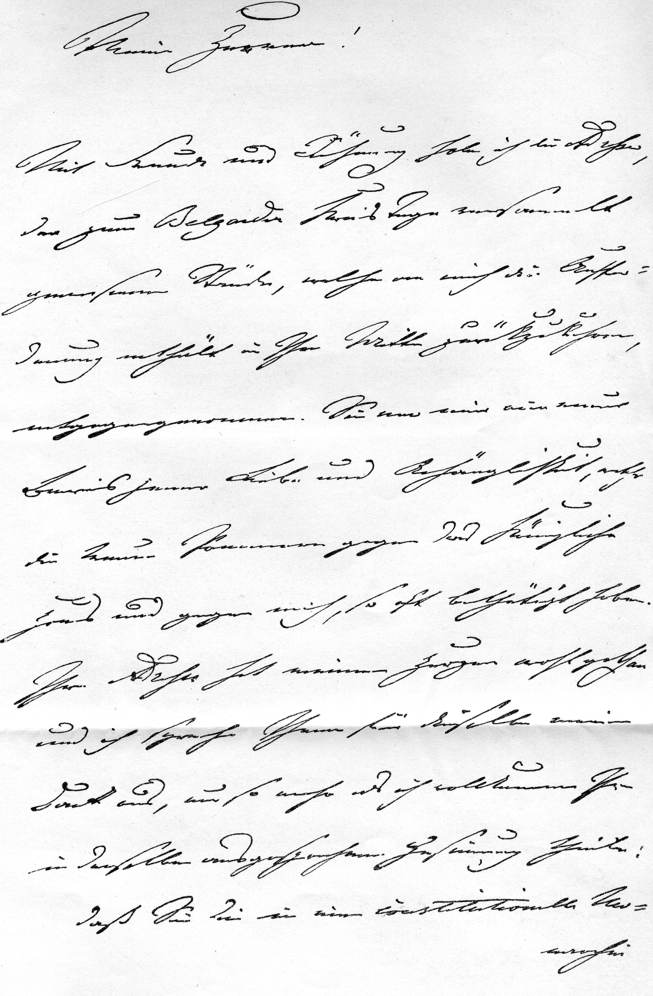 Meine Herren!
Mit Freude und Rührung habe ich die Adresse,
der zum Belgarder Kreis Tage versammelt
gewesenen Stände, welche an mich die Auffor=
derung enthält in Ihre Mitte zurückzukehren,
entgegengenommen. Sie war mir ein neuer
Beweis jener Liebe und Anhänglichkeit, welche
die treuen Pommern gegen das Königliche
Haus und gegen mich, so oft bethätigt haben.
Ihre Adresse hat meinem Herzen wohl gethan
und ich spreche Ihnen für dieselbe meinen
Dank aus, um so mehr als ich vollkommen die
in derselben ausgesprochene Gesinnung theile:
daß Sie die in eine constitutionelle Mo=
narchie